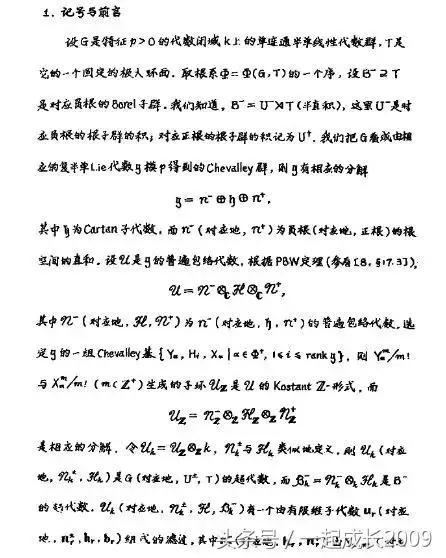 1. 记号与前言
设G是特征p>0的代数闭域k上的单连通半单线性代数群，T是
它的一个固定的极大环面．取根系Φ=Φ(G,T)的一个序，设B⁻⊇T
是对应负根的Borel子群．我们知道，B⁻=U⁻⋊T(半直积)，这里U⁻是对
应负根的根子群的积；对应正根的根子群的积记为U⁺．我们把G看成由相
应的复半单Lie代数𝔤模p得到的Chevalley群，则𝔤有相应的分解
𝔤=𝔫⁻⊕𝔥⊕𝔫⁺,
其中𝔥为Cartan子代数，而𝔫⁻(对应地，𝔫⁺)为负根(对应地，正根)的根
空间的直和．设𝒰是𝔤的普遍包络代数，根据PBW定理(参看[8, §17.3]),
𝒰=𝒩⁻⊗_ℂℋ⊗_ℂ𝒩⁺,
其中𝒩⁻(对应地，ℋ, 𝒩⁺)为𝔫⁻(对应地，𝔥, 𝔫⁺)的普遍包络代数．选
定𝔤的一组Chevalley基{Y_α, H_i, X_α | α∈Φ⁺, 1≤i≤rank 𝔤}，则Y_α^m/m!
与X_α^m/m! (m∈Z⁺)生成的子环𝒰_Z是𝒰的Kostant Z-形式，而
𝒰_Z=𝒩_Z⁻⊗_Zℋ_Z⊗_Z𝒩_Z⁺
是相应的分解．令𝒰_k=𝒰_Z⊗_Z k, 𝒩_k^±与ℋ_k类似地定义，则𝒰_k(对应
地，𝒩_k^±, ℋ_k)是G(对应地，U^±, T)的超代数，而ℬ_k⁻=𝒩_k⁻⊗_kℋ_k是B⁻
的超代数．𝒰_k(对应地，𝒩_k^±, ℋ, ℬ_k⁻)有一个由有限维子代数u_r(对应
地，n_r^±, h_r, b_r)组成的滤过，其中
头条号/一起成长2009